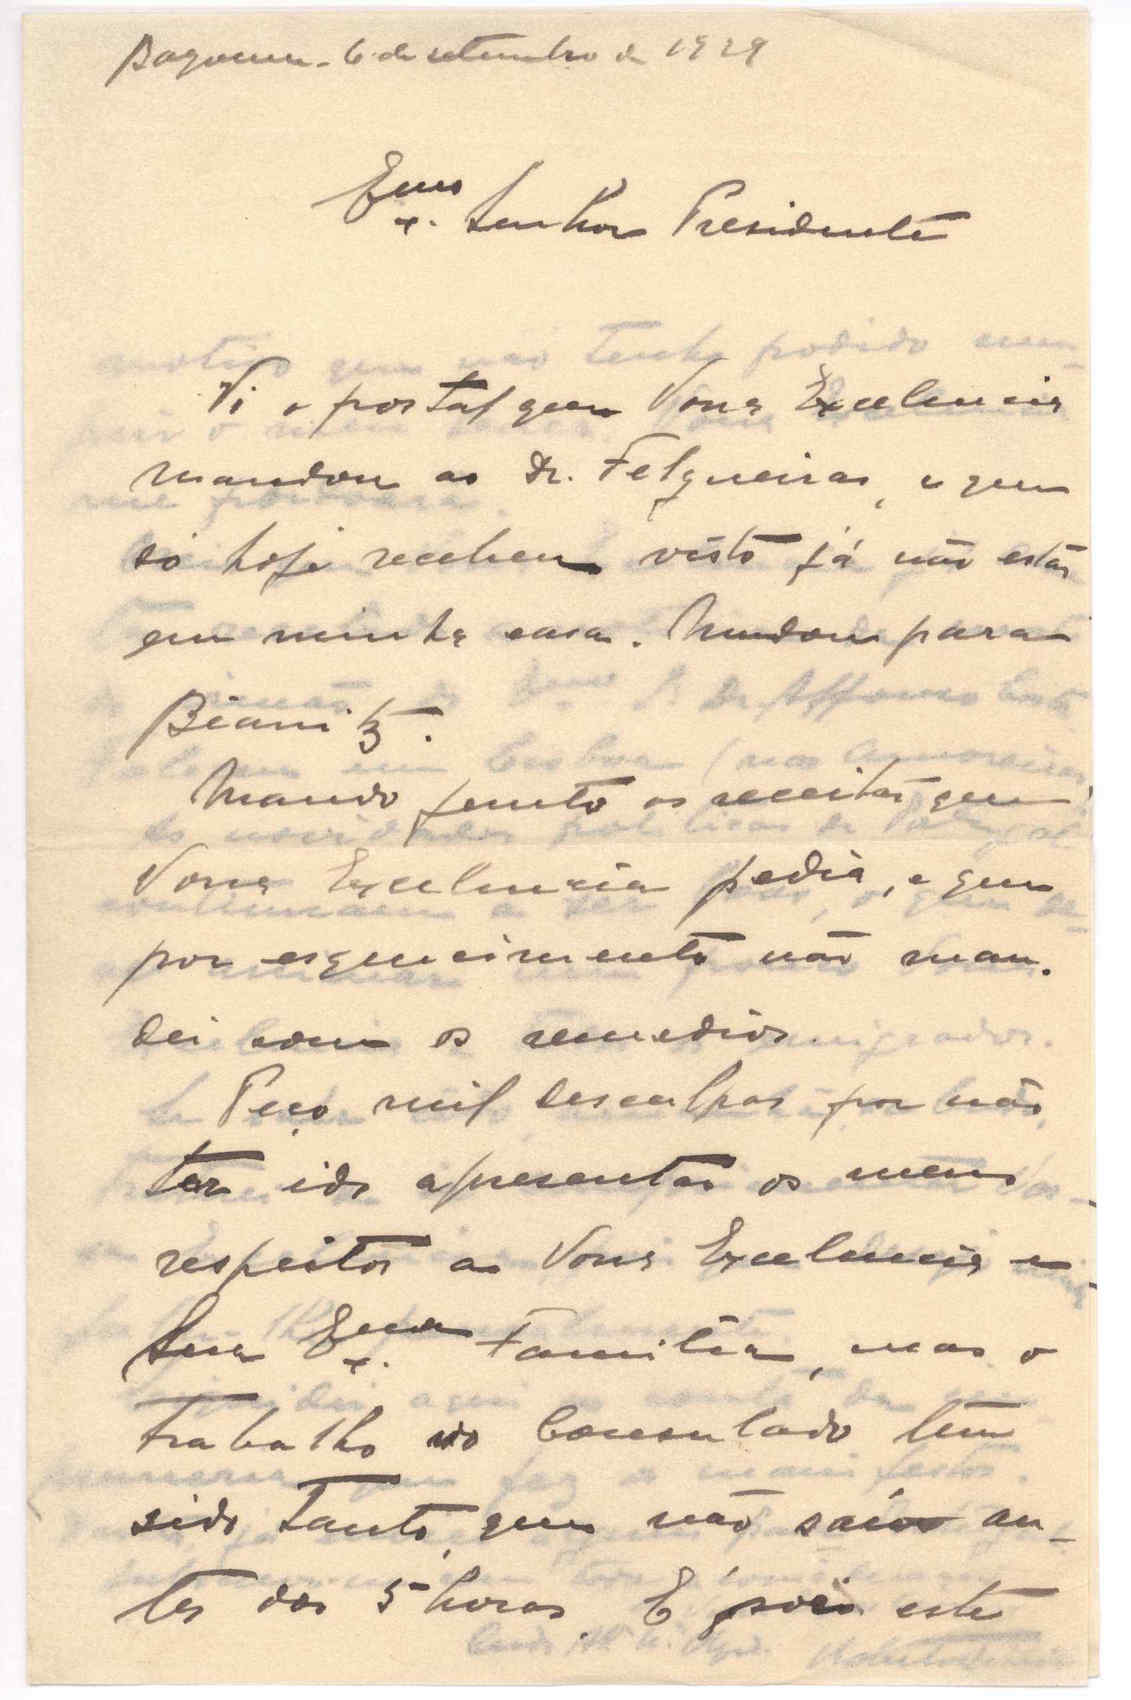 Bayonne - 6 de setembro de 1929
Exmo. Senhor Presidente
Vi o postal que Vossa Excelencia
mandou ao Dr. Felgueiras, e que
só hoje recebeu visto já não estar
em minha casa. Mudou para
Biarritz.
Mando junto as receitas que
Vossa Excelencia pedia, e que
por esquecimento não man-
dei com os remedios
Peço mil desculpas por não
ter ido apresentar os meus
respeitos a Vossa Excelencia e
Sua Exma. Familia, mas o
trabalho no Consulado tem
sido tanto, que não saio an-
tes das 5 horas. É pois este